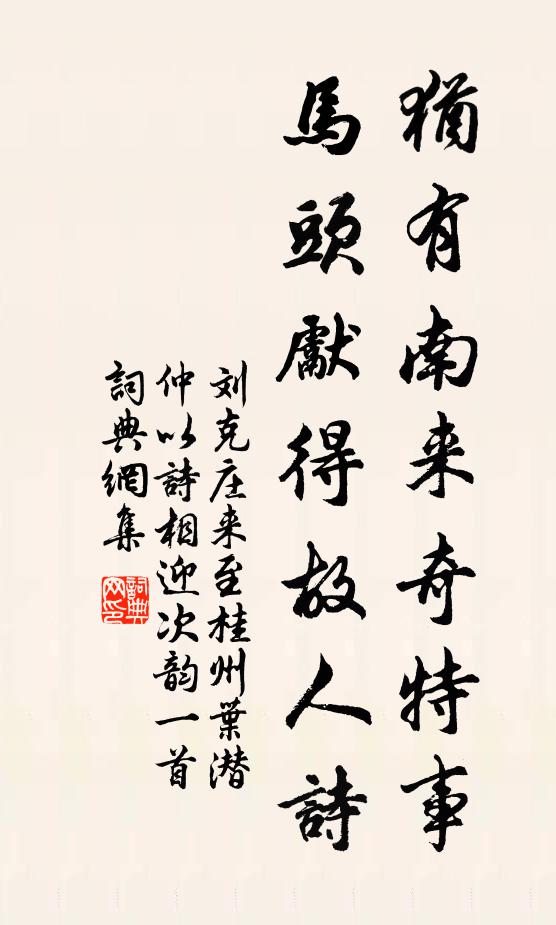 猶有南来奇特事
馬頭獻得故人詩
刘克庄来至桂州葉潜
仲以詩相迎次韵一首
詞典網集
詞典
网印